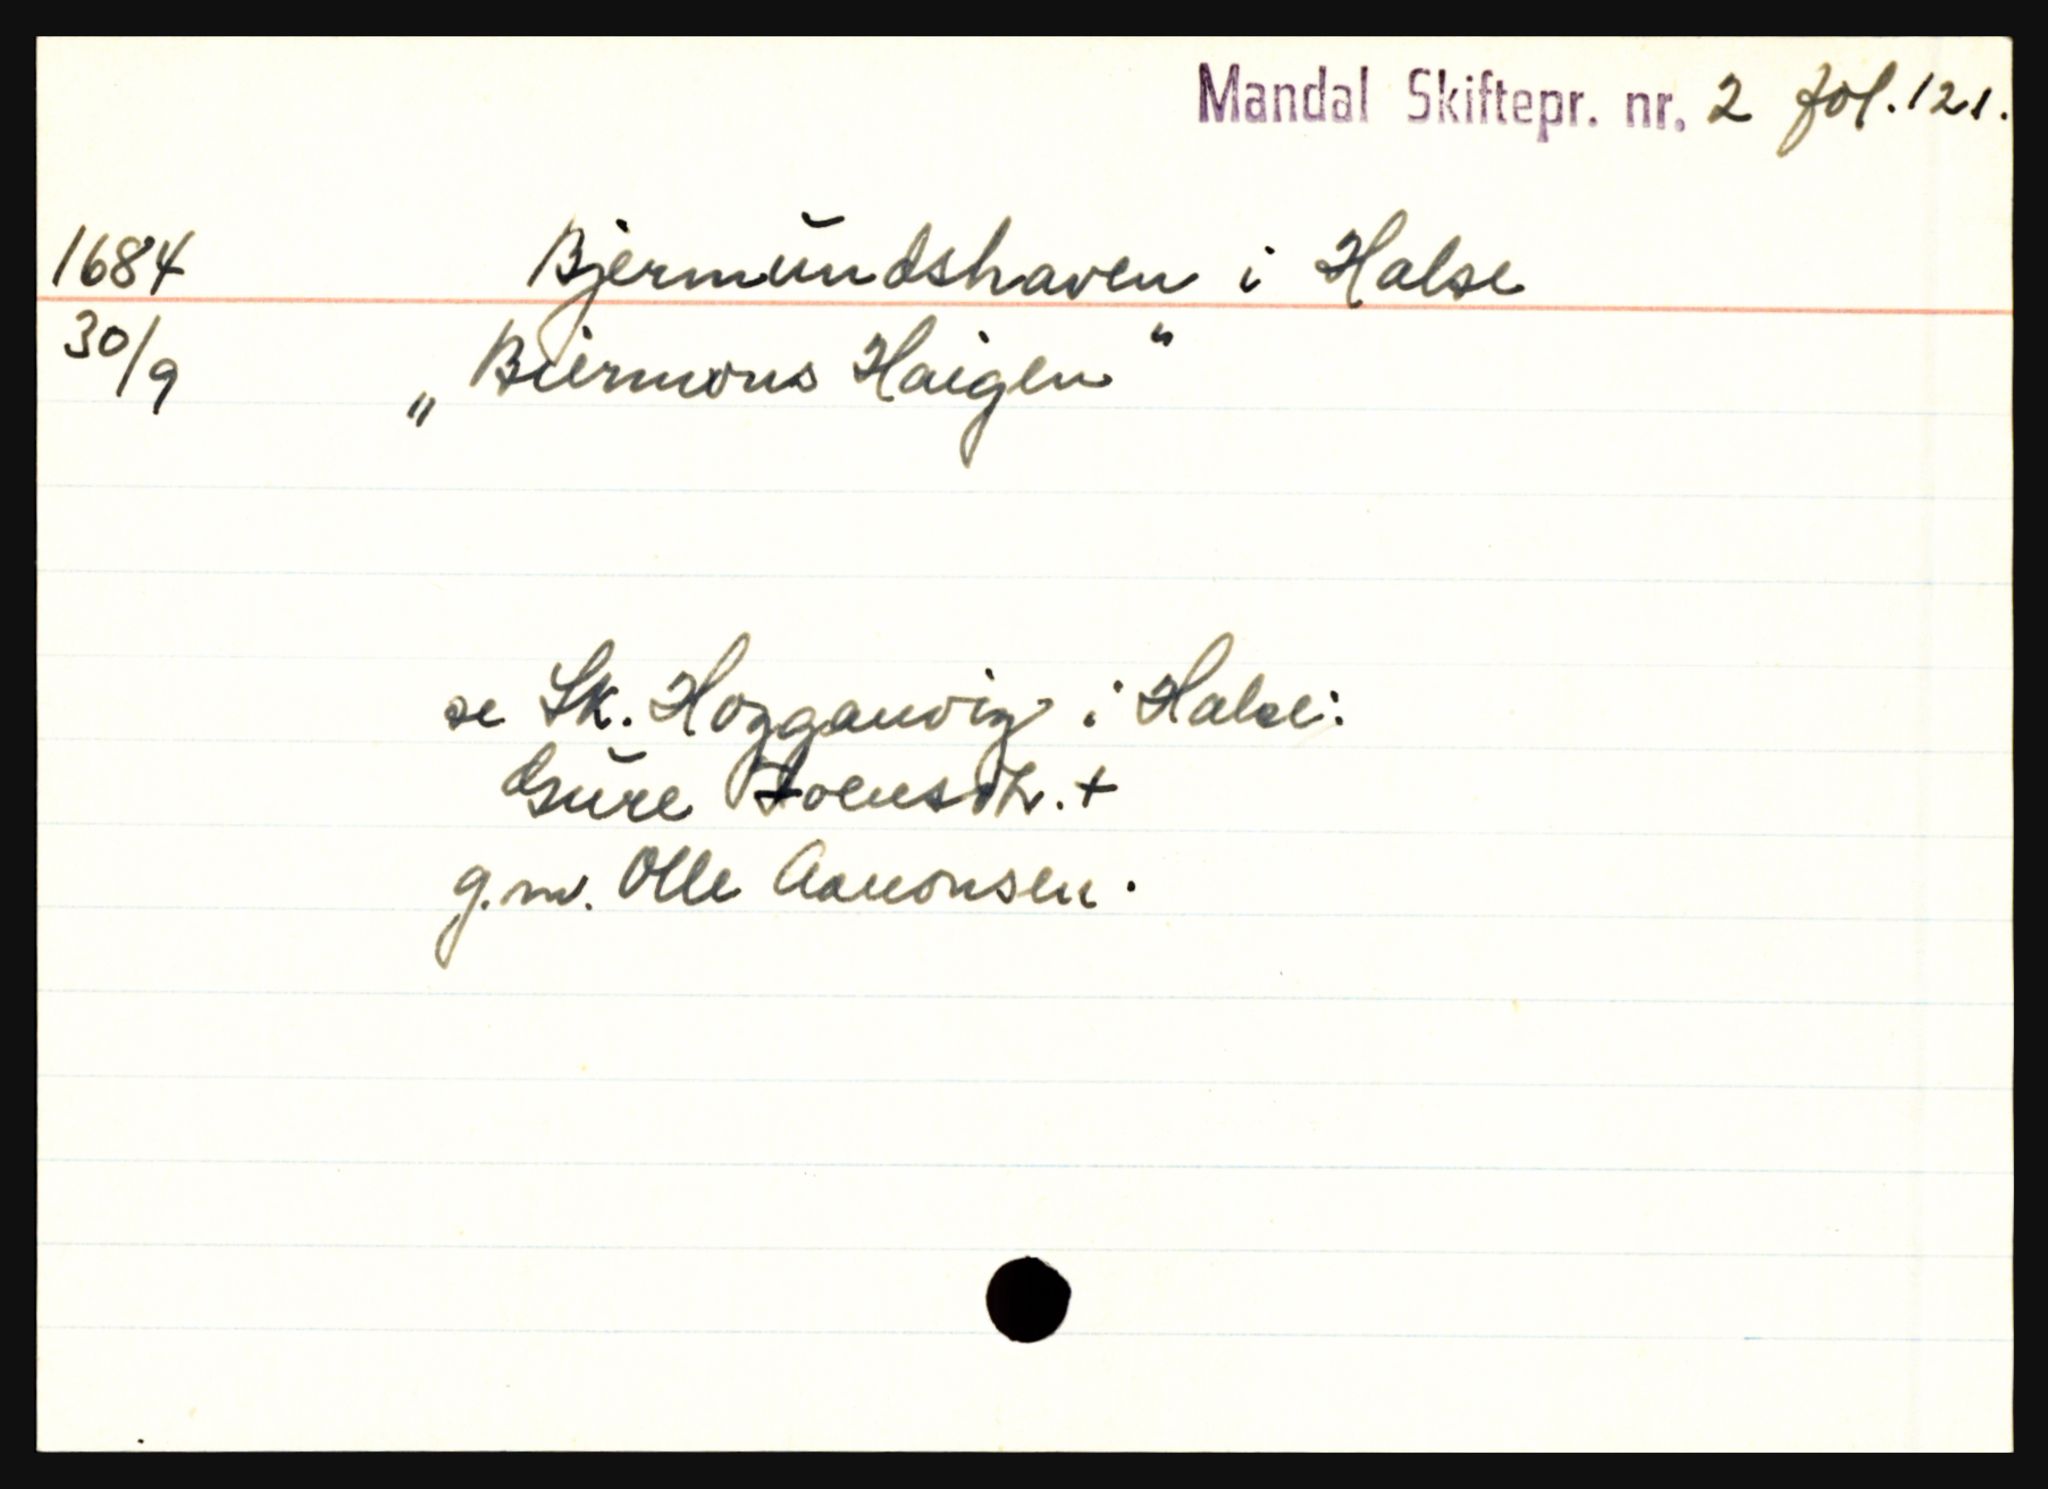 Mandal Skiftepr. nr. 2 fol. 121.
1684 Bjermŭndshaven i Halse
30/9 „Biermons Haigen"
se Sk. Hozganvig i Halse:
Gŭre Toensdtr. +
g.m. Olle Aanonsen.